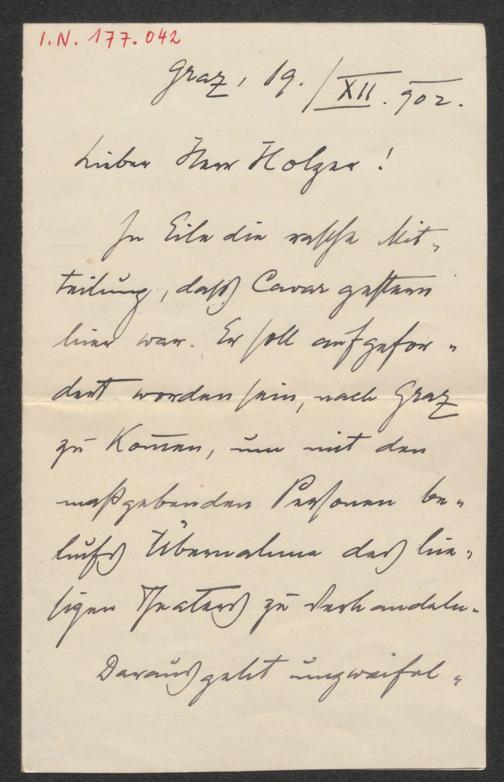 I.N. 177.042
Graz, 19./XII. 902.
Lieber Herr Holzer!
In Eile die rasche Mit-
teilung, dass Cavar gestern
hier war. Er soll aufgefor-
dert worden sein, nach Graz
zu kom̅en, um mit den
maßgebenden Personen be-
hufs Übernahme des hie-
sigen Teaters zu verhandeln.
Daraus geht unzweifel-